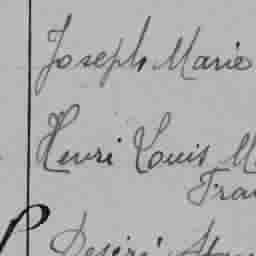 Joseph Marie
Henri Louis M
Fran
Désiré